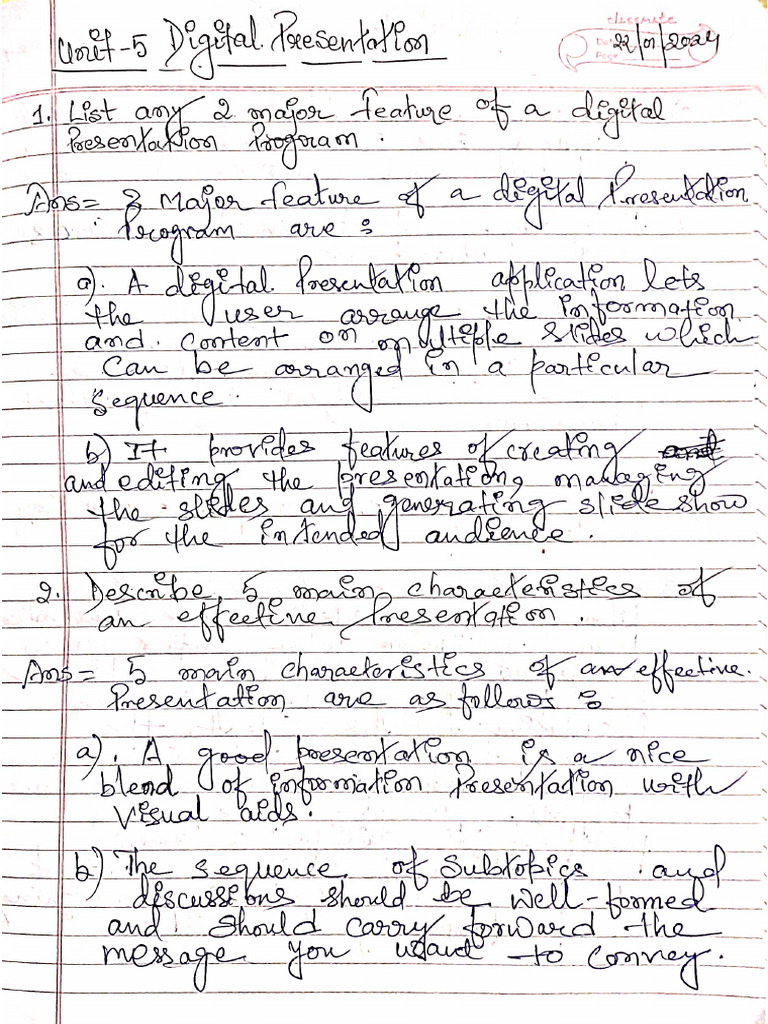 classmate
Date
Page
22/01/2024
Unit-5 Digital Presentation
1. List any 2 major feature of a digital
Presentation Program.
Ans= 2 Major feature of a digital Presentation
Program are :
a). A digital Presentation application lets
the user arrange the information
and content on multiple slides which
can be arranged in a particular
sequence.
b) It provides features of creating
and editing the presentation, managing
the slides and generating slide show
for the intended audience.
2. Describe 5 main characteristics of
an effective Presentation.
Ans= 5 main characteristics of an effective
Presentation are as follows :
a). A good presentation is a nice
blend of information Presentation with
visual aids.
b) The sequence of Subtopics and
discussions should be well-formed
and should carry forward the
message you want to convey.